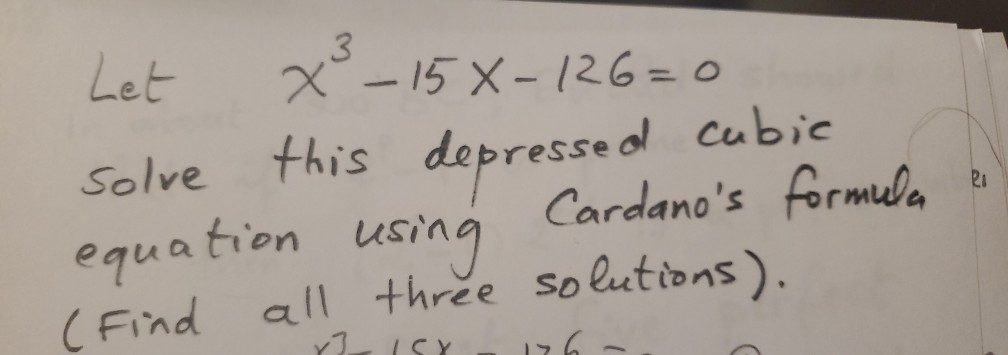 Let x³ - 15x - 126 = 0
solve this depressed cubic
equation using Cardano's formula
(Find all three solutions).
x³ - 15x - 126 =